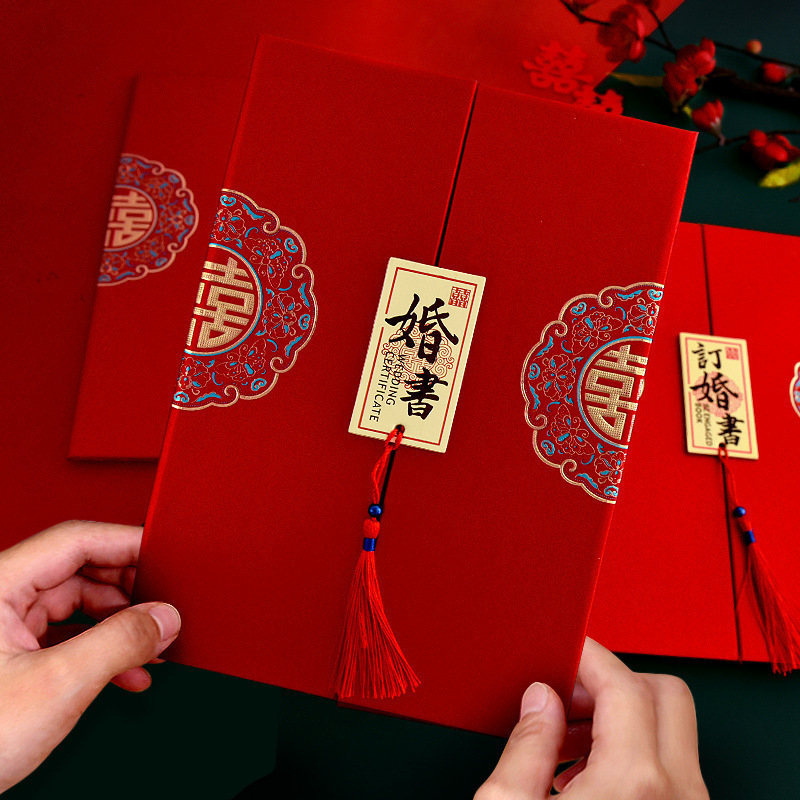 囍
囍
囍
囍
婚書
WEDDING
CERTIFICATE
囍
訂婚書
BE ENGAGED
BOOK